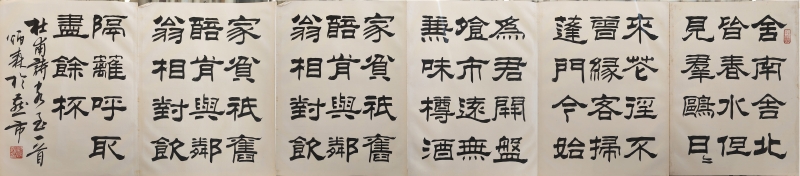 舍南舍北
皆春水但
見羣鷗日〻
來花徑不
曾緣客掃
蓬門今始
爲君開盤
飱市遠無
兼味樽酒
家貧祇舊
醅肯與鄰
翁相對飲
家貧祇舊
醅肯與鄰
翁相對飲
隔離呼取
盡餘杯
杜甫詩客至一首
炳森於燕市